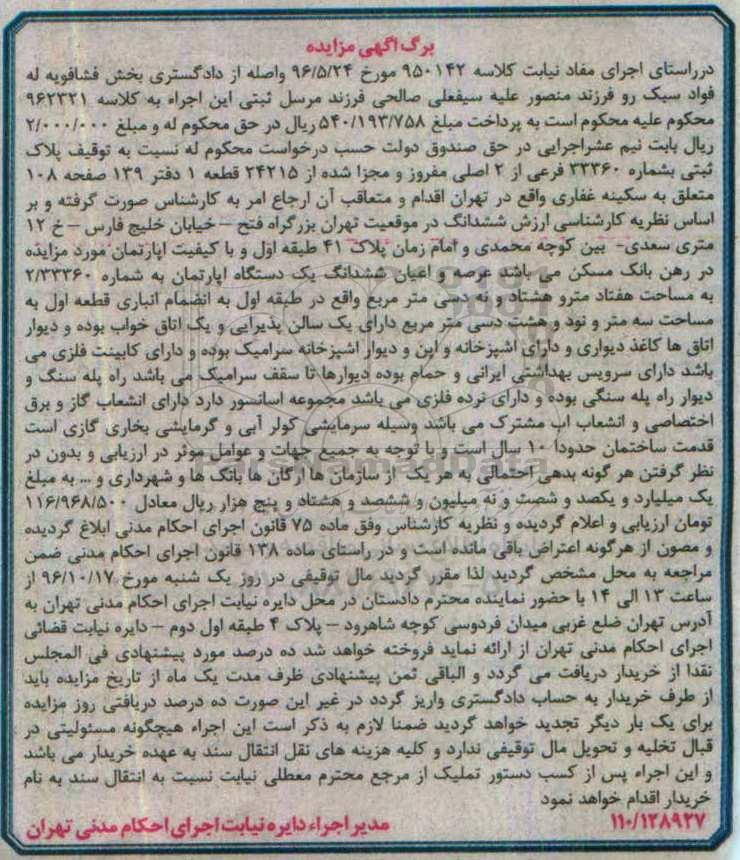 برگ آگهی مزایده
درراستای اجرای مفاد نیابت کلاسه ۹۵۰۱۴۲ مورخ ۹۶/۵/۲۴ واصله از دادگستری بخش فشافویه له
فواد سبک رو فرزند منصور علیه سیفعلی صالحی فرزند مرسل ثبتی این اجراء به کلاسه ۹۶۲۳۲۱
محکوم علیه محکوم است به پرداخت مبلغ ۵۴۰/۱۹۳/۷۵۸ ریال در حق محکوم له و مبلغ ۲/۰۰۰/۰۰۰
ریال بابت نیم عشراجرایی در حق صندوق دولت حسب درخواست محکوم له نسبت به توقیف پلاک
ثبتی بشماره ۳۳۳۶۰ فرعی از ۲ اصلی مفروز و مجزا شده از ۲۴۲۱۵ قطعه ۱ دفتر ۱۳۹ صفحه ۱۰۸
متعلق به سکینه غفاری واقع در تهران اقدام و متعاقب آن ارجاع امر به کارشناس صورت گرفته و بر
اساس نظریه کارشناسی ارزش ششدانگ در موقعیت تهران بزرگراه فتح – خیابان خلیج فارس – خ ۱۲
متری سعدی- بین کوچه محمدی و امام زمان پلاک ۴۱ طبقه اول و با کیفیت اپارتمان مورد مزایده
در رهن بانک مسکن می باشد عرصه و اعیان ششدانگ یک دستگاه اپارتمان به شماره ۲/۳۳۳۶۰
به مساحت هفتاد مترو هشتاد و نه دسی متر مربع واقع در طبقه اول به انضمام انباری قطعه اول به
مساحت سه متر و نود و هشت دسی متر مربع دارای یک سالن پذیرایی و یک اتاق خواب بوده و دیوار
اتاق ها کاغذ دیواری و دارای اشپزخانه و اپن و دیوار اشپزخانه سرامیک بوده و دارای کابینت فلزی می
باشد دارای سرویس بهداشتی ایرانی و حمام بوده دیوارها تا سقف سرامیک می باشد راه پله سنگ و
دیوار راه پله سنگی بوده و دارای نرده فلزی می باشد مجموعه اسانسور دارد دارای انشعاب گاز و برق
اختصاصی و انشعاب اب مشترک می باشد وسیله سرمایشی کولر آبی و گرمایشی بخاری گازی است
قدمت ساختمان حدودا ۱۰ سال است و با توجه به جمیع جهات و عوامل موثر در ارزیابی و بدون در
نظر گرفتن هر گونه بدهی احتمالی به هر یک از سازمان ها ارگان ها بانک ها و شهرداری و ... به مبلغ
یک میلیارد و یکصد و شصت و نه میلیون و ششصد و هشتاد و پنج هزار ریال معادل ۱۱۶/۹۶۸/۵۰۰
تومان ارزیابی و اعلام گردیده و نظریه کارشناس وفق ماده ۷۵ قانون اجرای احکام مدنی ابلاغ گردیده
و مصون از هرگونه اعتراض باقی مانده است و در راستای ماده ۱۳۸ قانون اجرای احکام مدنی ضمن
مراجعه به محل مشخص گردید لذا مقرر گردید مال توقیفی در روز یک شنبه مورخ ۹۶/۱۰/۱۷ از
ساعت ۱۳ الی ۱۴ با حضور نماینده محترم دادستان در محل دایره نیابت اجرای احکام مدنی تهران به
آدرس تهران ضلع غربی میدان فردوسی کوچه شاهرود – پلاک ۴ طبقه اول دوم – دایره نیابت قضائی
اجرای احکام مدنی تهران از ارائه نماید فروخته خواهد شد ده درصد مورد پیشنهادی فی المجلس
نقدا از خریدار دریافت می گردد و الباقی ثمن پیشنهادی ظرف مدت یک ماه از تاریخ مزایده باید
از طرف خریدار به حساب دادگستری واریز گردد در غیر این صورت ده درصد دریافتی روز مزایده
برای یک بار دیگر تجدید خواهد گردید ضمنا لازم به ذکر است این اجراء هیچگونه مسئولیتی در
قبال تخلیه و تحویل مال توقیفی ندارد و کلیه هزینه های نقل انتقال سند به عهده خریدار می باشد
و این اجراء پس از کسب دستور تملیک از مرجع محترم معطلی نیابت نسبت به انتقال سند به نام
خریدار اقدام خواهد نمود
۱۱۰/۱۲۸۹۲۷ مدیر اجراء دایره نیابت اجرای احکام مدنی تهران
ParsNamadData